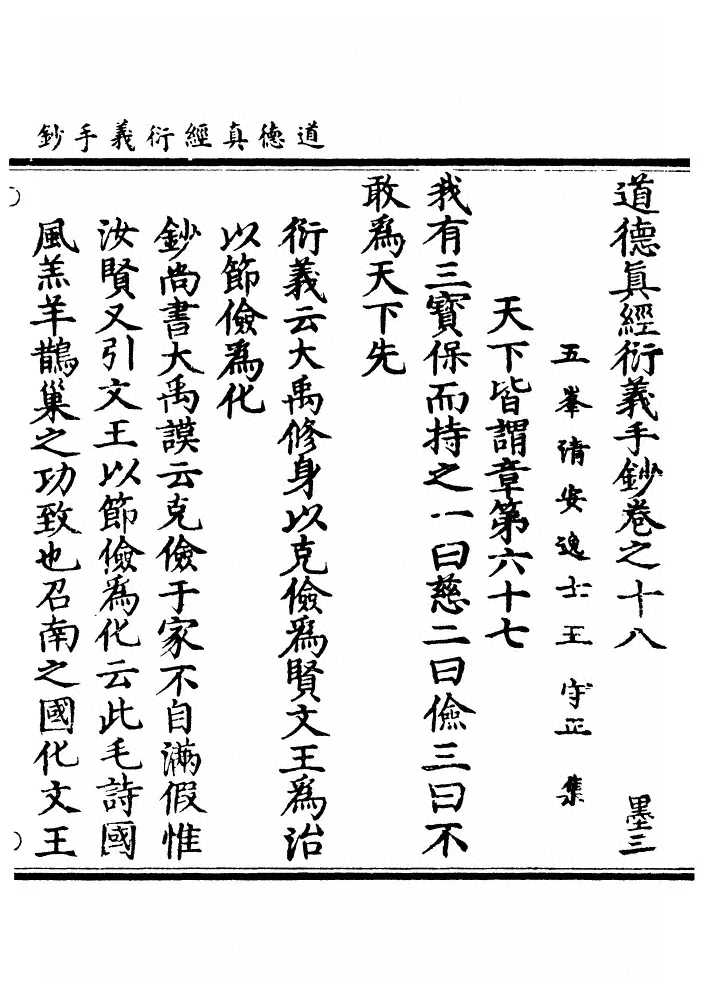 道德真經衍義手鈔
道德眞經衍義手鈔卷之十八
墨三
五峯清安逸士王守正集
天下皆謂章第六十七
我有三寳保而持之一曰慈二曰儉三曰不
敢爲天下先
衍義云大禹修身以克儉爲賢文王爲治
以節儉爲化
鈔尚書大禹謨云克儉于家不自滿假惟
汝賢又引文王以節儉爲化云此毛詩國
風羔羊鵲巢之功致也召南之國化文王